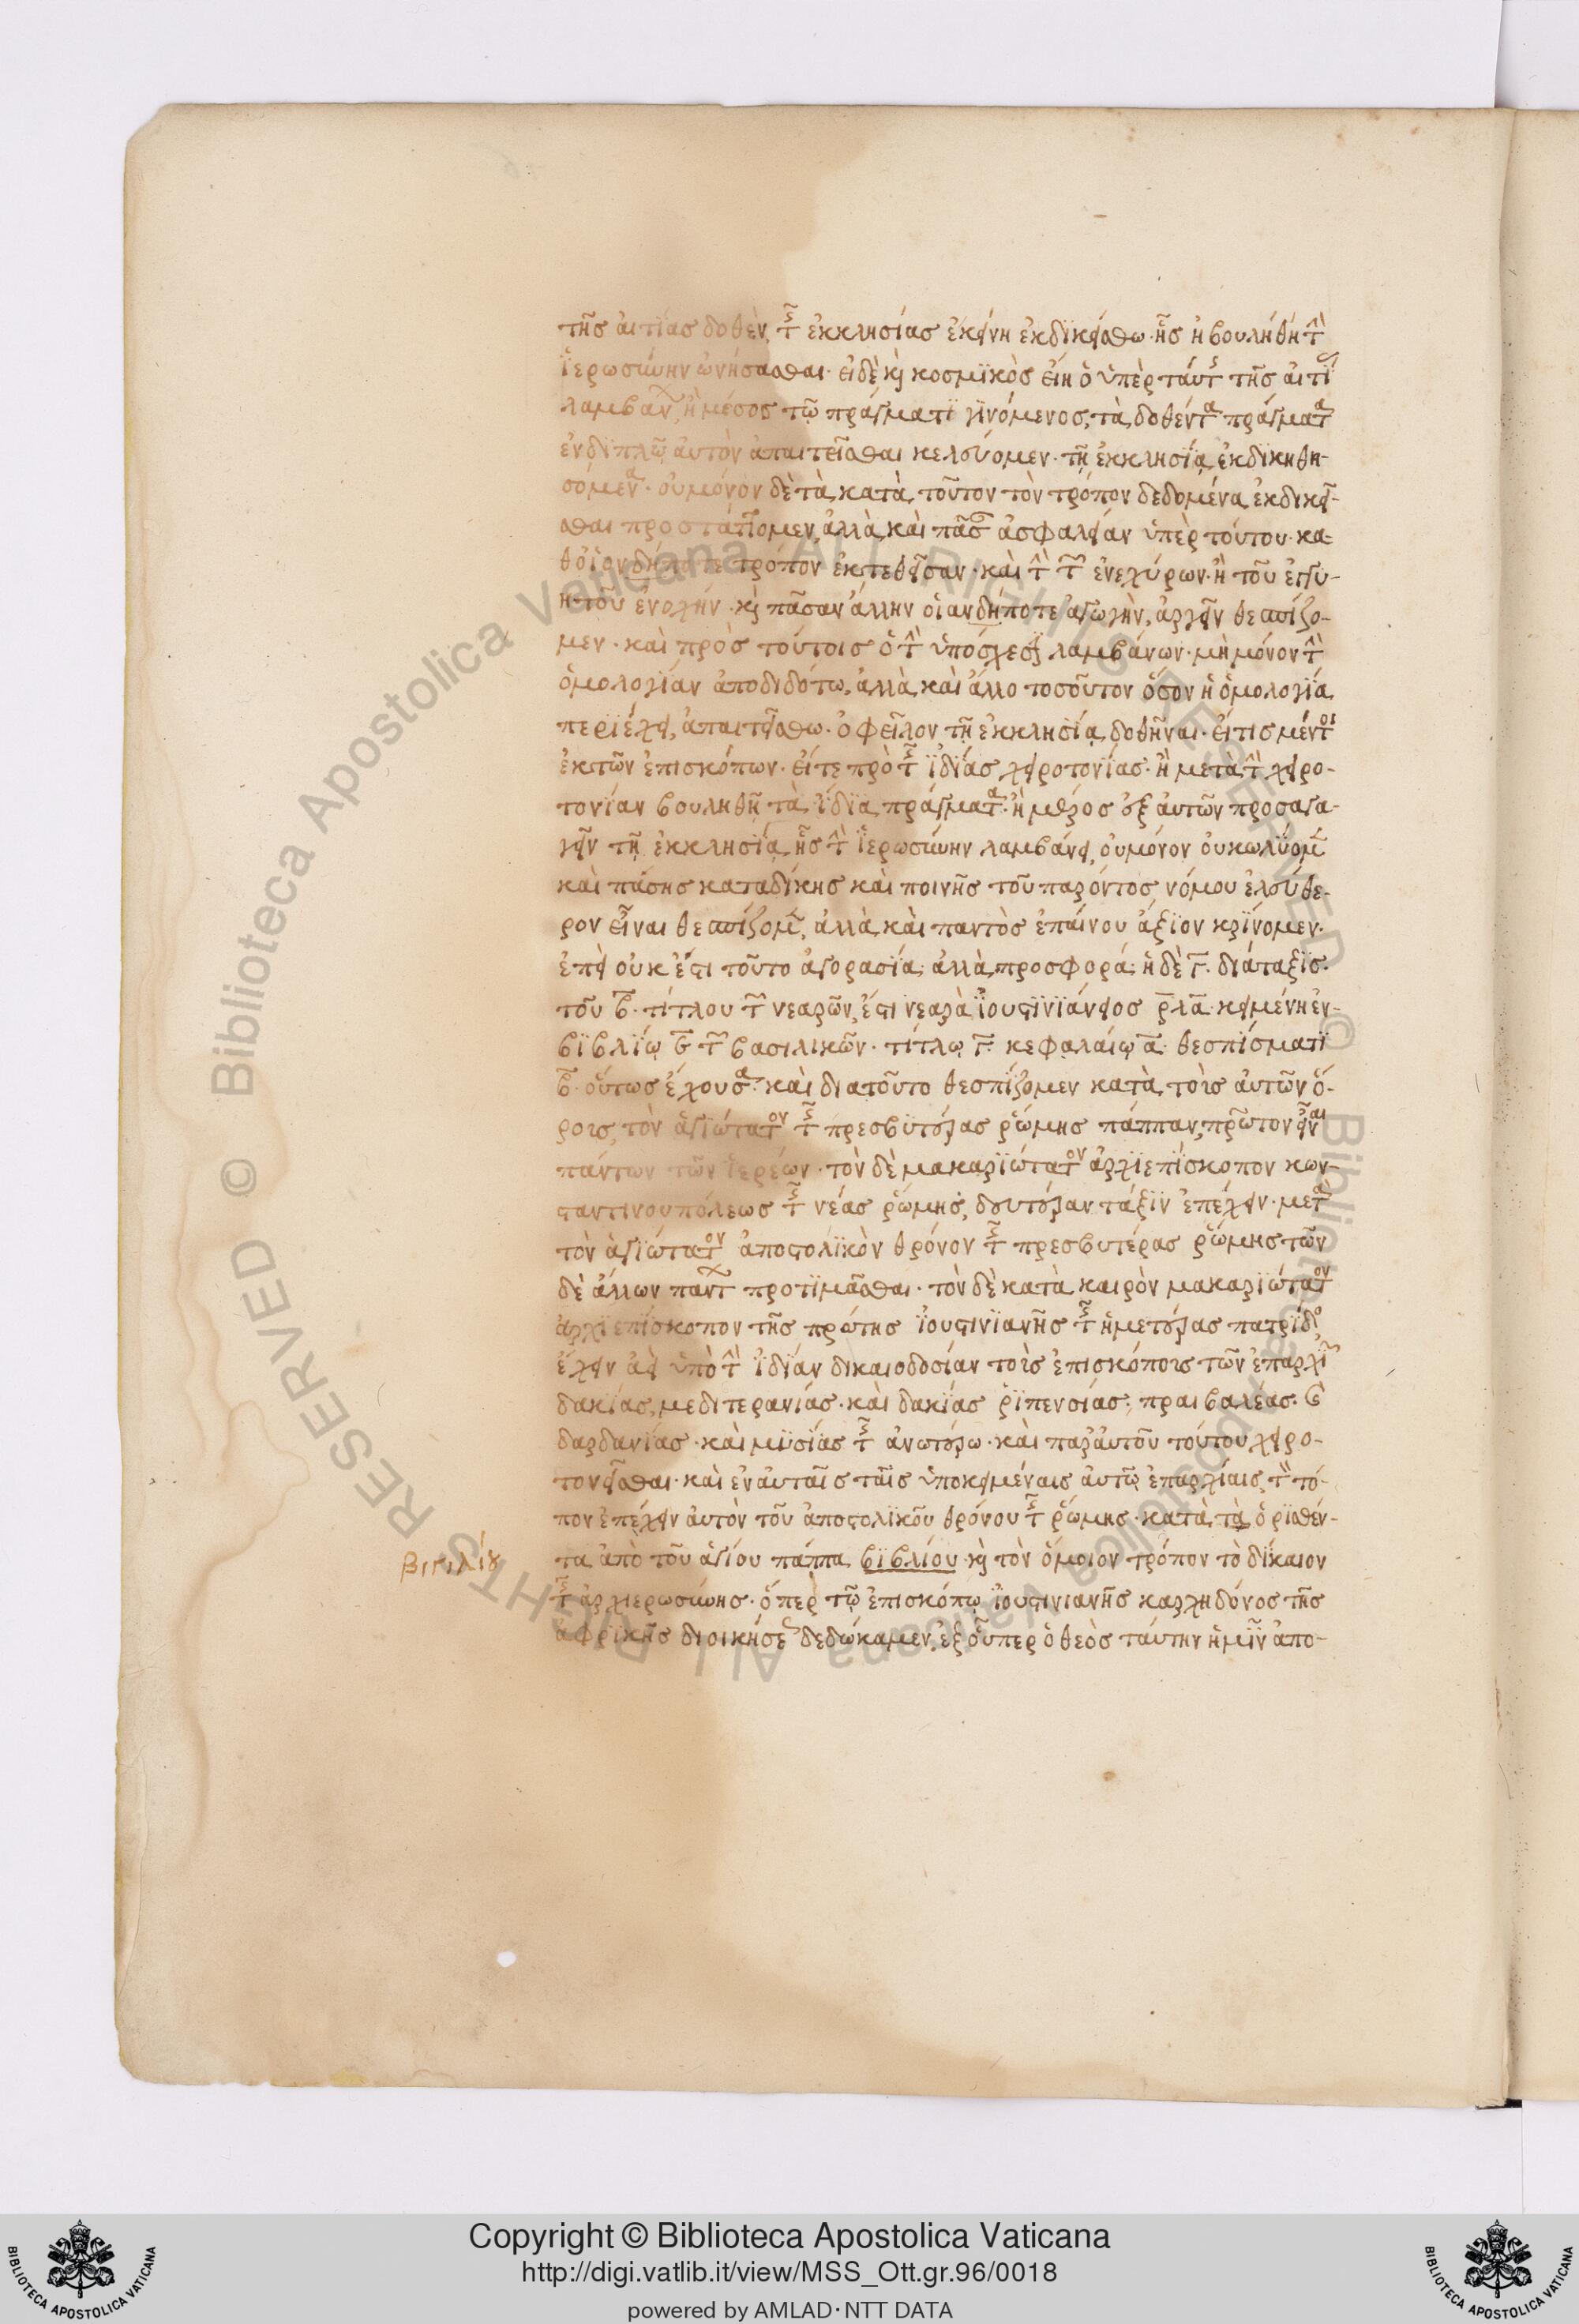 τῆς αἰτίας δοθὲν, τῆς ἐκκλησίας ἐκείνη ἐκδικείσθω· ἧς ἠβουλήθη τὴν
ἱερωσύνην ὠνήσασθαι· εἰ δὲ καὶ κοσμϊκὸς εἴη ὁ ὑπὲρ ταύτης τῆς αἰτί
λαμβάνων, ἢ μέσος τῷ πράγματϊ γϊνόμενος, τὰ δοθέντα πράγματα
ἐν διπλῷ αὐτὸν ἀπαιτεῖσθαι κελεύομεν· τῇ ἐκκλησίᾳ ἐκδικηθη-
σόμενα· οὐ μόνον δὲ τὰ κατὰ τοῦτον τὸν τρόπον δεδομένα ἐκδικεῖ-
σθαι προστάττομεν, ἀλλὰ καὶ πᾶσαν ἀσφαλείαν ὑπὲρ τούτου· κα-
θ' οἱονδήποτε τρόπον ἐκτεθεῖσαν· καὶ τὴν τῶν ἐνεχύρων· ἢ τοῦ ἐγγυ-
η τοῦ ἐνοχήν· καὶ πᾶσαν ἄλλην οἱανδήποτε ἀγωγὴν, ἀργεῖν θεσπίζο-
μεν· καὶ πρὸς τούτοις ὁ τὴν ὑπόσχεσιν λαμβάνων· μὴ μόνον τὴν
ὁμολογίαν ἀποδιδότω, ἀλλὰ καὶ ἄλλο τοσοῦτον ὅσον ἡ ὁμολογία
περϊέχει, ἀπαιτείσθω· ὀφεῖλον τῇ ἐκκλησίᾳ δοθῆναι· εἴ τις μέντοι
ἐκ τῶν ἐπισκόπων· εἴτε πρὸ τῆς ἰδίας χειροτονίας· ἢ μετὰ τὴν χειρο-
τονίαν βουληθῇ τὰ ἴδια πράγματα· ἢ μέρος ἐξ αὐτῶν προσαγα-
γεῖν τῇ ἐκκλησίᾳ ἧς τὴν ἱερωσύνην λαμβάνει, οὐ μόνον οὐ κωλύομεν
καὶ πάσης καταδίκης καὶ ποινῆς τοῦ παρόντος νόμου ἐλεύθε-
ρον εἶναι θεσπίζομεν, ἀλλὰ καὶ παντὸς ἐπαίνου ἄξιον κρίνομεν·
ἐπεὶ οὐκ ἔστι τοῦτο ἀγορασία· ἀλλὰ προσφορά· ἡ δὲ γ̅· διάταξις·
τοῦ β̅· τίτλου τῶν νεαρῶν, ἔστι νεαρὰ ἰουστινιάνειος ρ̅λ̅α̅· κειμένη ἐν
βιβλίῳ ε̅ τῶν βασιλικῶν· τίτλῳ γ̅· κεφαλαίῳ α̅· θεσπίσματι
β̅· οὕτως ἔχουσα· καὶ διατοῦτο θεσπίζομεν κατὰ τοὺς αὐτῶν ὅ-
ρους, τὸν ἁγιώτατον τῆς πρεσβυτέρας ῥώμης πάππαν, πρῶτον εἶναι
πάντων τῶν ἱερέων· τὸν δὲ μακαριώτατον ἀρχιεπίσκοπον κων-
σταντινουπόλεως τῆς νέας ῥώμης, δευτέραν τάξιν ἐπέχειν· μετὰ
τὸν ἁγιώτατον ἀποστολικὸν θρόνον τῆς πρεσβυτέρας ῥώμης τῶν
δὲ ἄλλων πάντων προτιμᾶσθαι· τὸν δὲ κατὰ καιρὸν μακαριώτατον
ἀρχιεπίσκοπον τῆς πρώτης ἰουστινιανῆς τῆς ἡμετέρας πατρίδος
ἔχειν ἀεὶ ὑπὸ τὴν ἰδίαν δικαιοδοσίαν τοὺς ἐπισκόπους τῶν ἐπαρχιῶν
δακίας, μεδιτερανίας· καὶ δακίας ῥιπενσίας· πραιβαλέας· καὶ
δαρδανίας· καὶ μυσίας τῆς ἀνωτέρω· καὶ παρ' αὐτοῦ τούτου χειρο-
τονεῖσθαι· καὶ ἐν αὐταῖς ταῖς ὑποκειμέναις αὐτῷ ἐπαρχίαις, τὸν τό-
πον ἐπέχειν αὐτὸν τοῦ ἀποστολικοῦ θρόνου τῆς ῥώμης· κατὰ τὰ ὁρισθέν-
τα ἀπὸ τοῦ ἁγίου πάππα βιβλίου· καὶ τὸν ὅμοιον τρόπον τὸ δίκαιον
βιγιλίου
τῆς ἀρχιερωσύνης· ὅπερ τῷ ἐπισκόπῳ ἰουστινιανῆς καρχηδόνος τῆς
ἀφρικῆς διοικήσεως δεδώκαμεν, ἐξ οὗπερ ὁ θεὸς ταύτην ἡμῖν ἀπο-
Copyright © Biblioteca Apostolica Vaticana
http://digi.vatlib.it/view/MSS_Ott.gr.96/0018
powered by AMLAD·NTT DATA